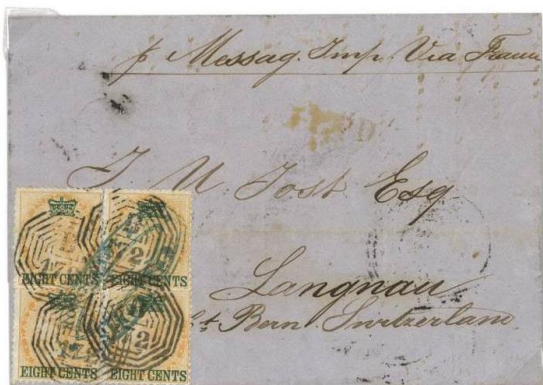 p Messag. Imp. Via France
PAID
J U Jost Esq
Langnau
Ct Bern Switzerland
B
172
B
172
EIGHT CENTS EIGHT CENTS
B
172
B
172
EIGHT CENTS EIGHT CENTS